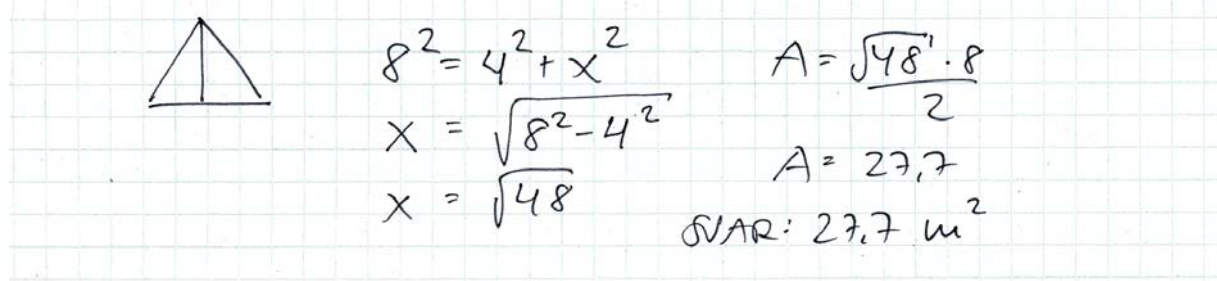 8² = 4² + x²
x = √(8² - 4²)
x = √48
A = (√48 · 8) / 2
A = 27,7
SVAR: 27,7 m²